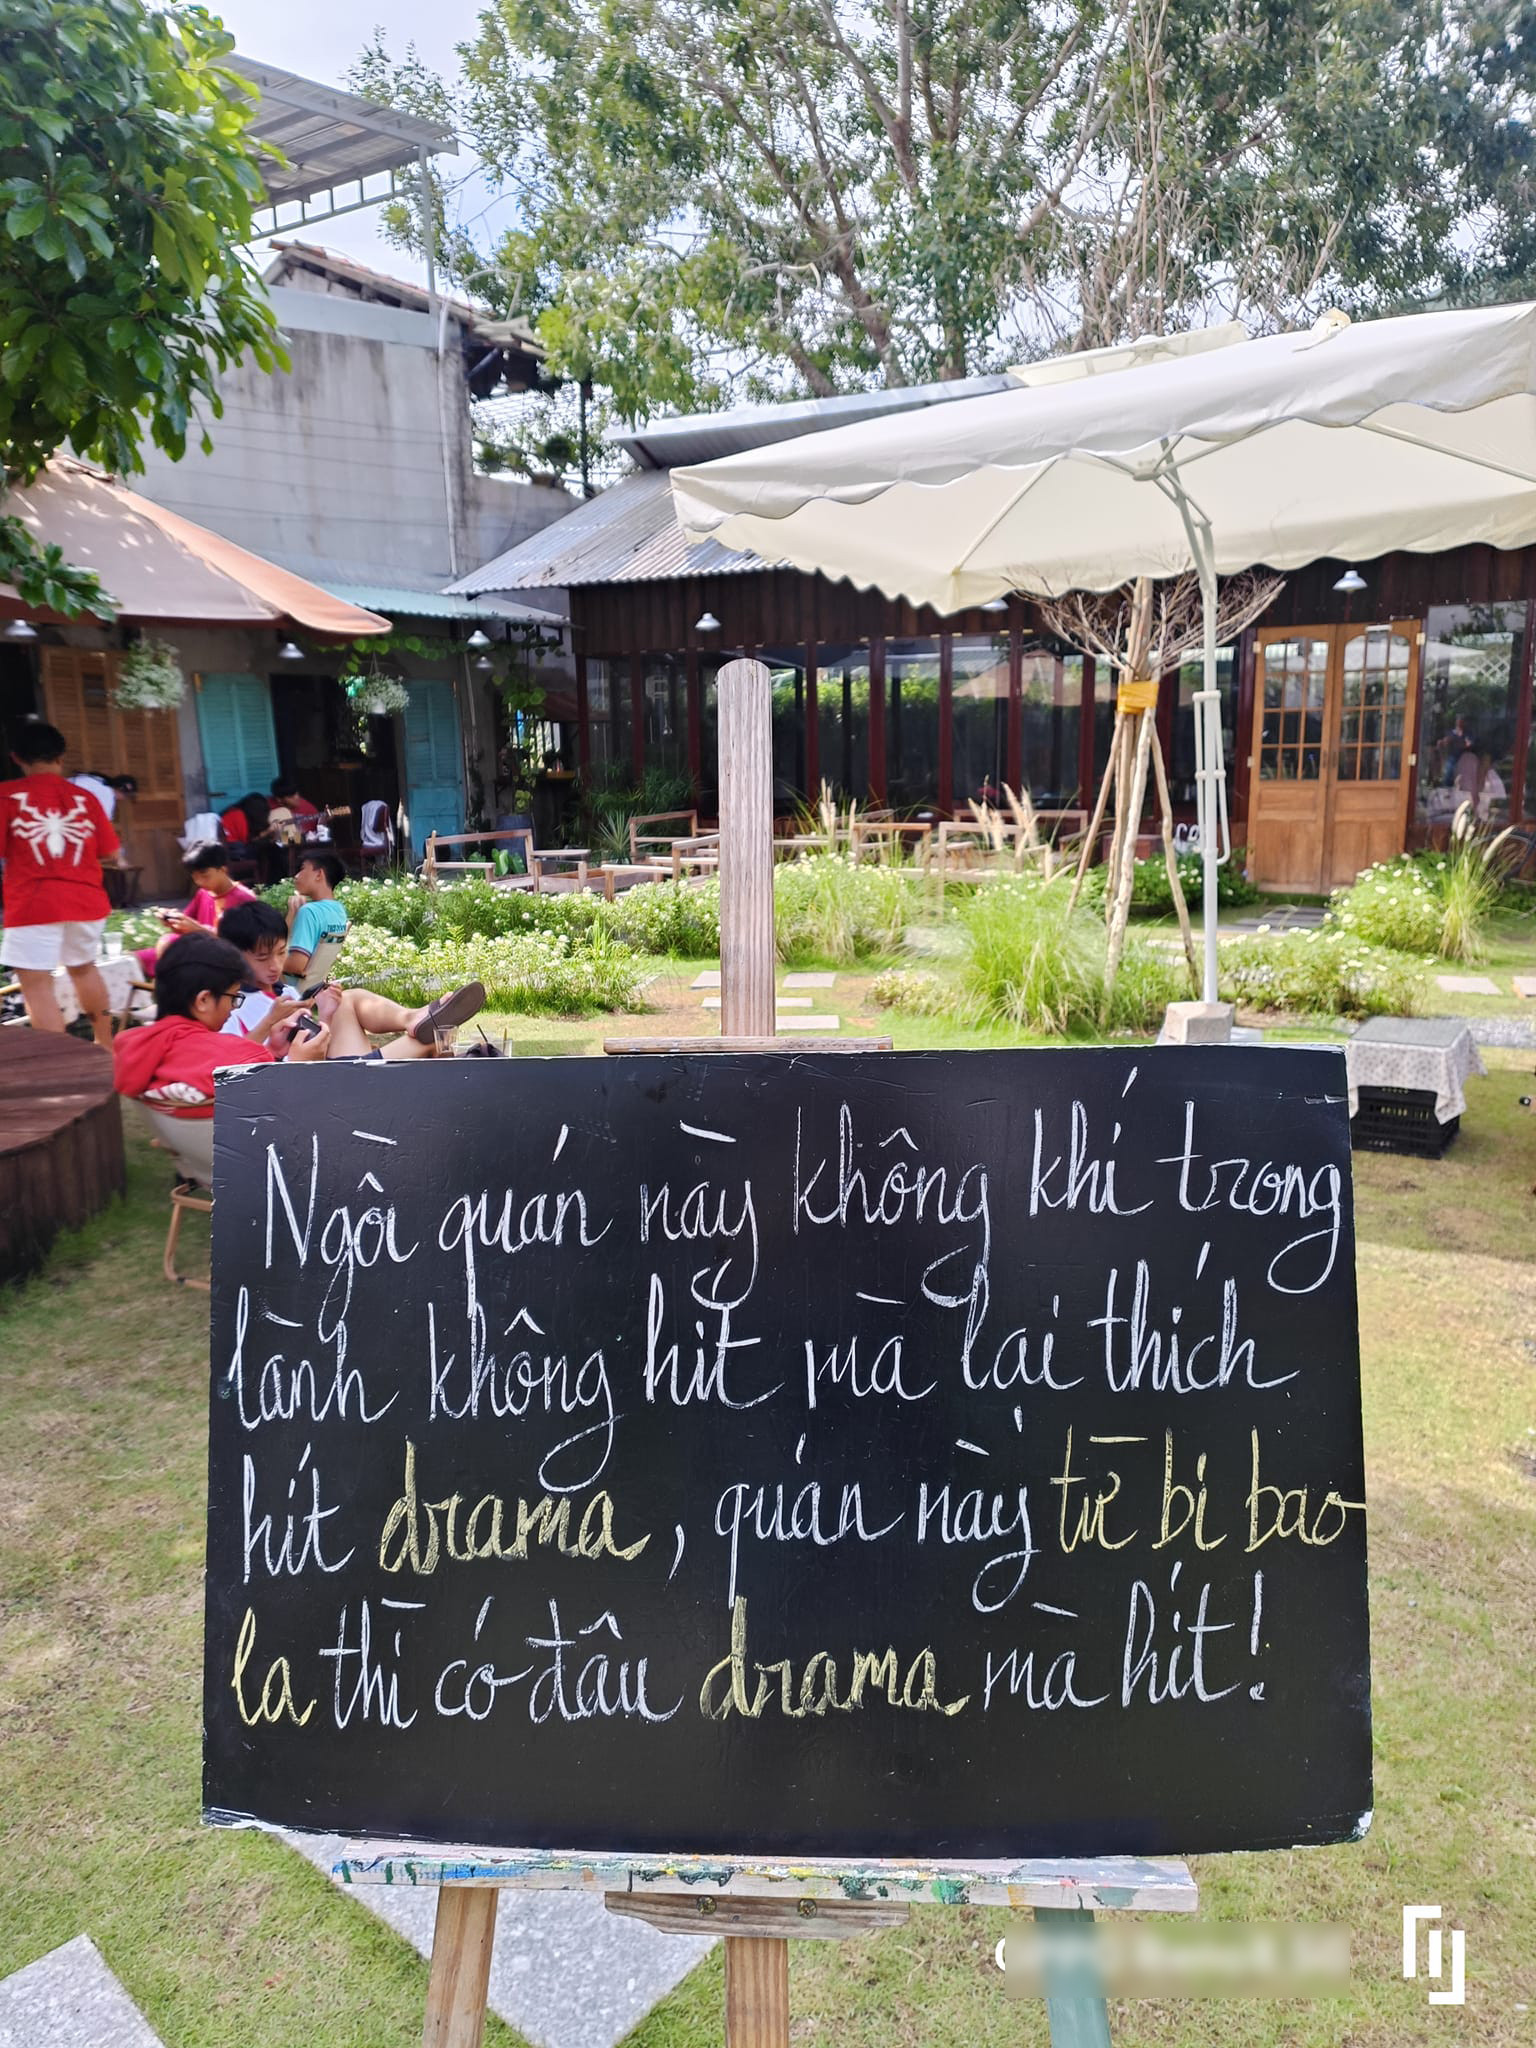 Ngồi quán này không khí trong
lành không hít mà lại thích
hít drama, quán này từ bi bao
la thì có đâu drama mà hít!